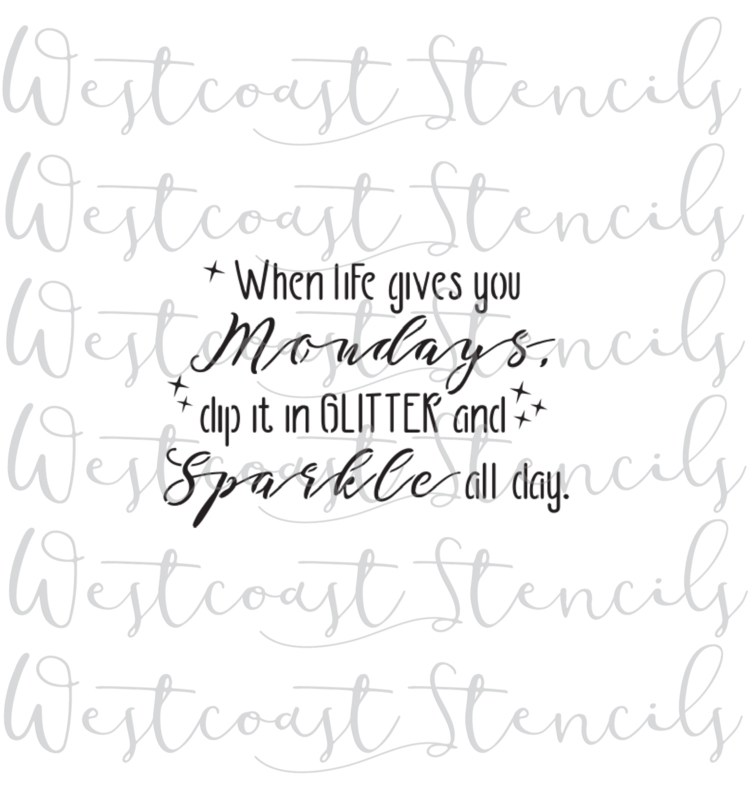 Westcoast Stencils
Westcoast Stencils
When life gives you
Westcoast Stencils
Mondays,
dip it in GLITTER and
Westcoast Stencils
Sparkle all day.
Westcoast Stencils
Westcoast Stencils